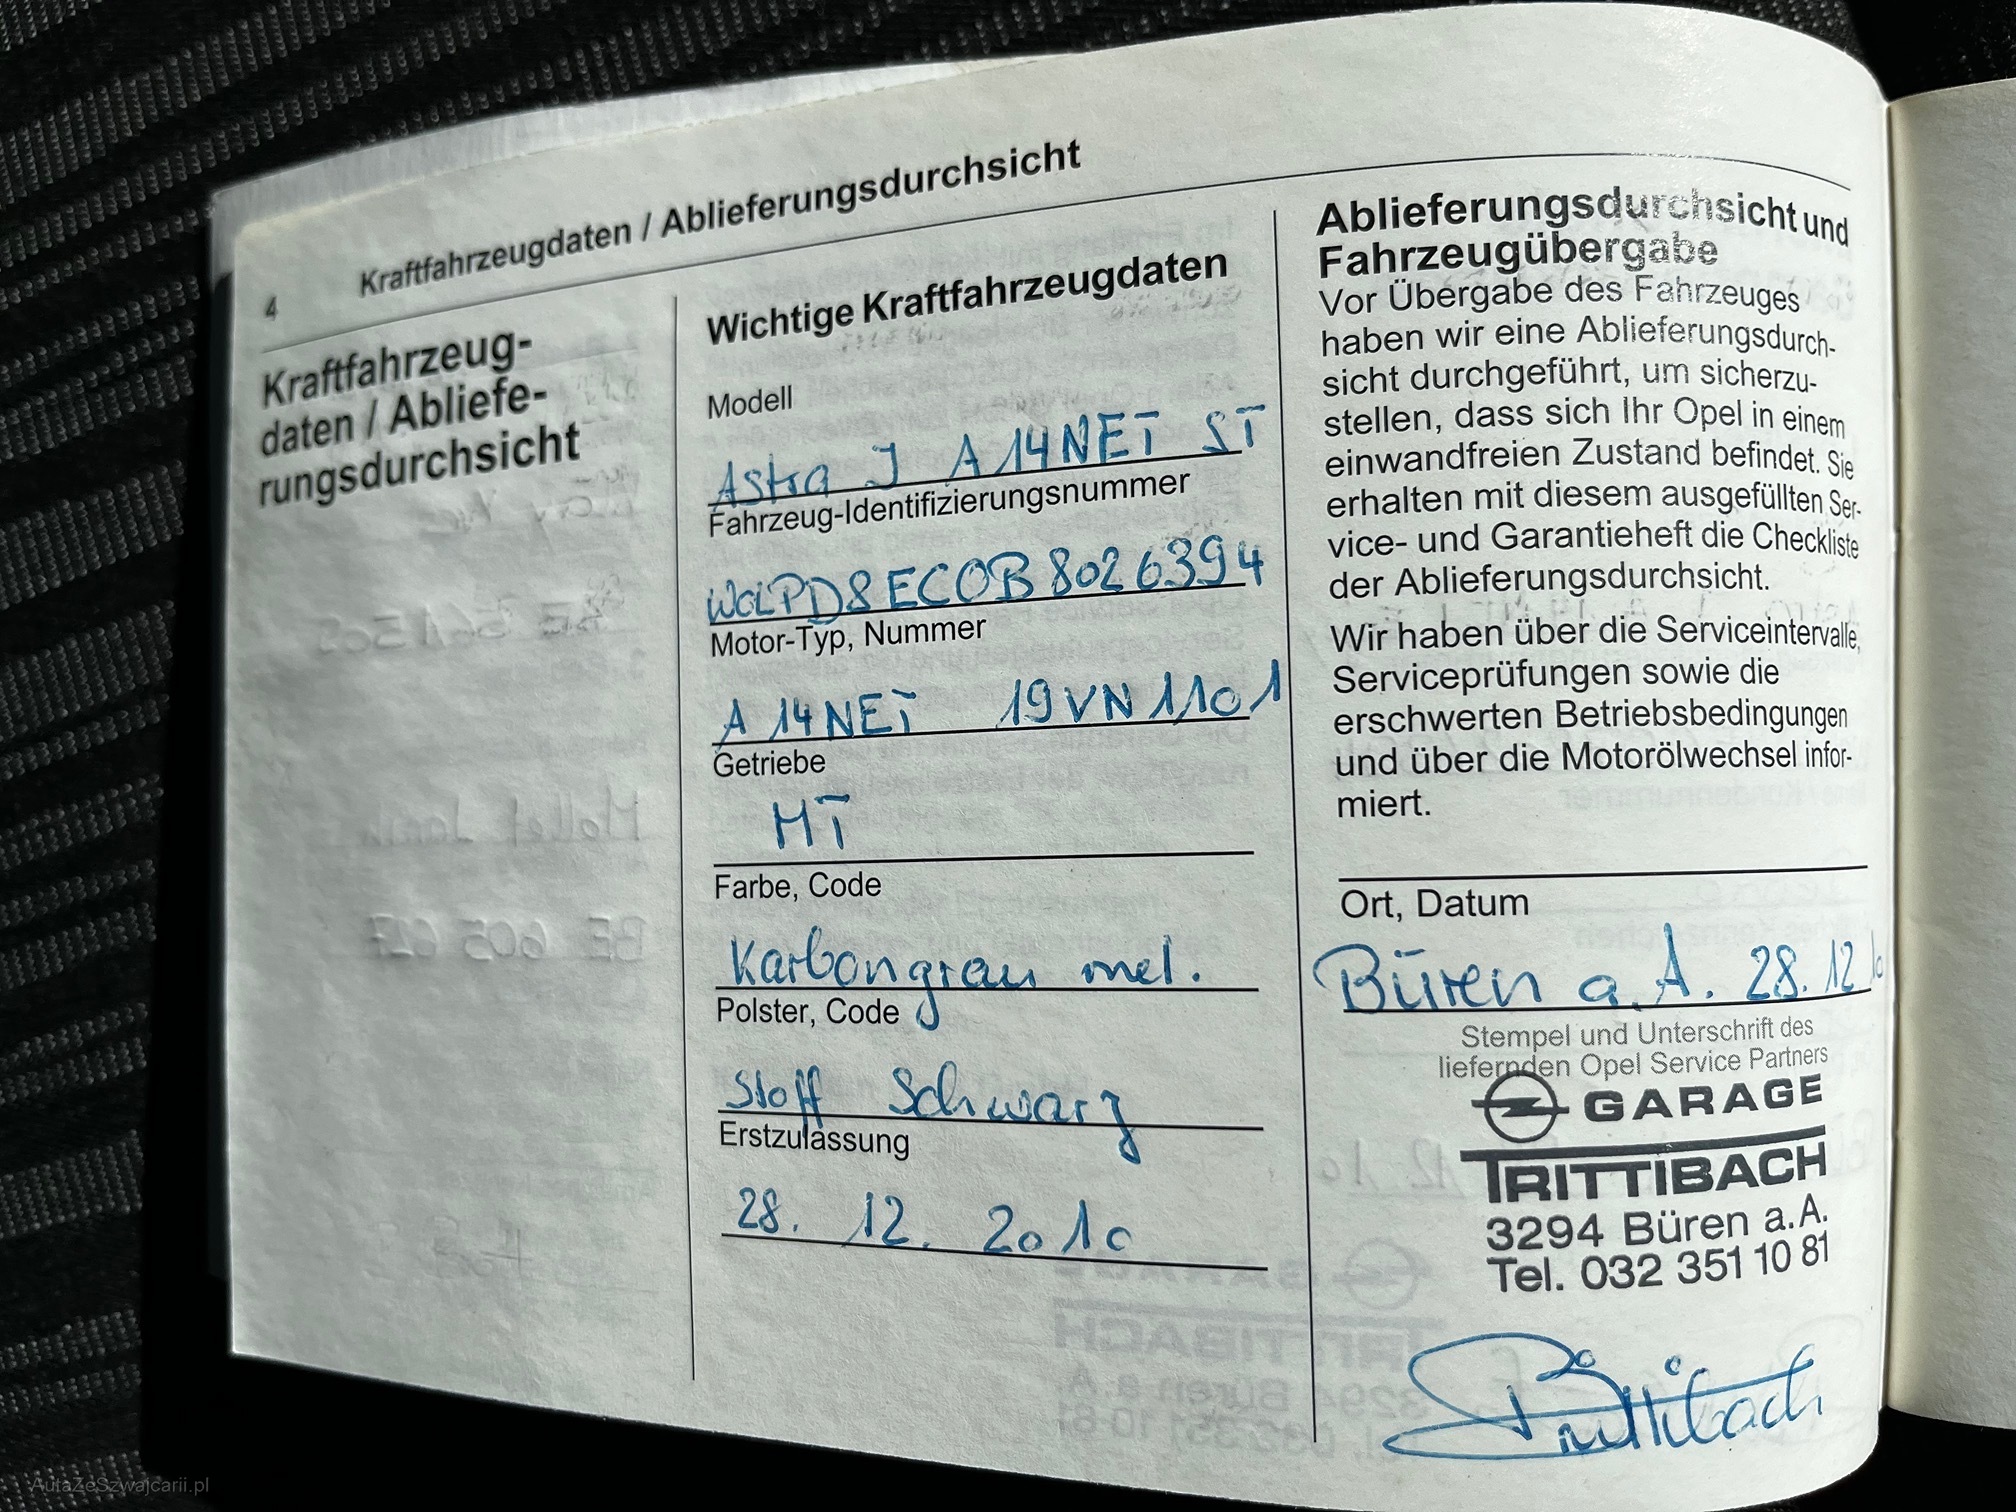 4 Kraftfahrzeugdaten / Ablieferungsdurchsicht
Kraftfahrzeug-
daten / Abliefe-
rungsdurchsicht
Wichtige Kraftfahrzeugdaten
Modell
Astra J A14NET ST
Fahrzeug-Identifizierungsnummer
W0LPD8EC0B8026394
Motor-Typ, Nummer
A 14NET 19VN1101
Getriebe
MT
Farbe, Code
Karbongrau met.
Polster, Code
Stoff Schwarz
Erstzulassung
28. 12. 2010
Ablieferungsdurchsicht und
Fahrzeugübergabe
Vor Übergabe des Fahrzeuges
haben wir eine Ablieferungsdurch-
sicht durchgeführt, um sicherzu-
stellen, dass sich Ihr Opel in einem
einwandfreien Zustand befindet. Sie
erhalten mit diesem ausgefüllten Ser-
vice- und Garantieheft die Checkliste
der Ablieferungsdurchsicht.
Wir haben über die Serviceintervalle,
Serviceprüfungen sowie die
erschwerten Betriebsbedingungen
und über die Motorölwechsel infor-
miert.
Ort, Datum
Büren a.A. 28.12.10
Stempel und Unterschrift des
liefernden Opel Service Partners
GARAGE
TRITTIBACH
3294 Büren a.A.
Tel. 032 351 10 81
Trittibach
AutaZeSzwajcarii.pl